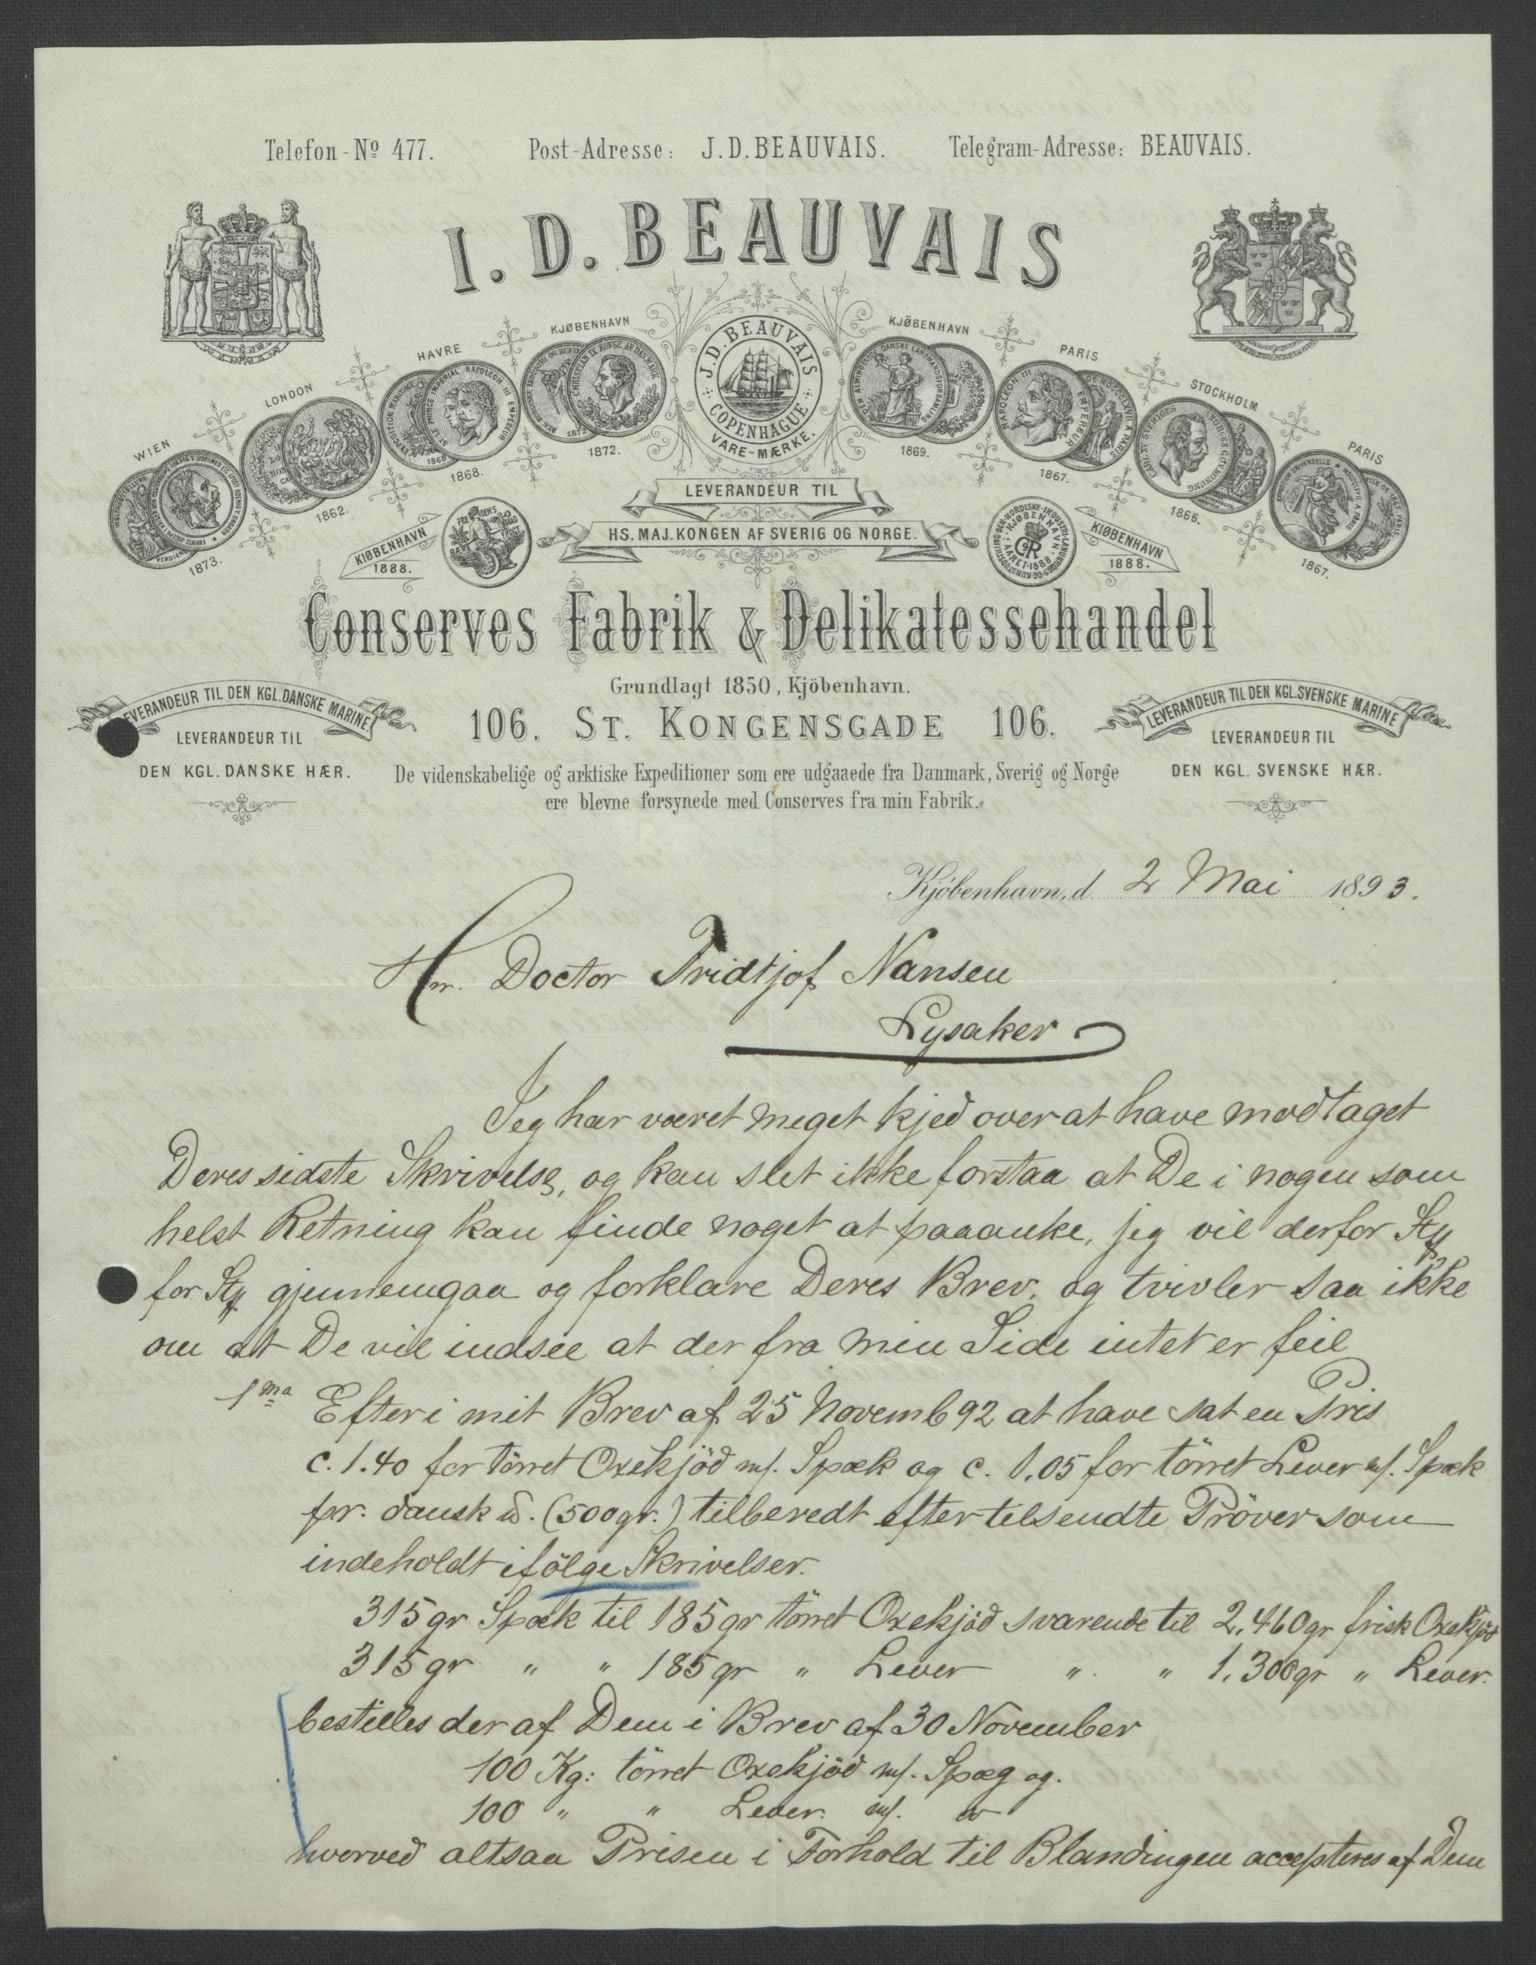 Telefon-Nº 477. Post-Adresse: J.D.BEAUVAIS. Telegram-Adresse: BEAUVAIS.
I. D. BEAUVAIS
KJØBENHAVN
KJØBENHAVN
HAVRE
PARIS
LONDON
STOCKHOLM
WIEN
PARIS
J.D.BEAUVAIS
COPENHAGUE
VARE-MÆRKE.
1872.
1869.
1868.
1867.
1862.
1866.
1873.
1867.
LEVERANDEUR TIL
HS. MAJ. KONGEN AF SVERIG OG NORGE.
KIØBENHAVN
1888.
KIØBENHAVN
1888.
Conserves Fabrik & Delikatessehandel
Grundlagt 1850, Kjöbenhavn.
LEVERANDEUR TIL DEN KGL. DANSKE MARINE.
LEVERANDEUR TIL
DEN KGL. DANSKE HÆR.
106. ST. KONGENSGADE 106.
LEVERANDEUR TIL DEN KGL. SVENSKE MARINE
LEVERANDEUR TIL
DEN KGL. SVENSKE HÆR.
De videnskabelige og arktiske Expeditioner som ere udgaaede fra Danmark, Sverig og Norge
ere blevne forsynede med Conserves fra min Fabrik.
Kjöbenhavn, d. 2 Mai 1893.
Hr. Doctor Fridtjof Nansen
Lysaker
Jeg har været meget kjed over at have modtaget
Deres sidste Skrivelse, og kan slet ikke forstaa at De i nogen som
helst Retning kan finde noget at paaanke, jeg vil derfor Stk
for Stk gjennemgaa og forklare Deres Brev, og tvivler saa ikke
om at De vil indsee at der fra min Side intet er feil
1ma Efter i mit Brev af 25 Novemb 92 at have sat en Pris
c. 1.40 for törret Oxekjöd m/. Spæk og c. 1,05 for törret Lever m/. Spæk
pr. dansk ℔. (500gr.) tilberedt efter tilsendte Pröver som
indeholdt ifölge Skrivelser.
315gr Spæk til 185gr törret Oxekjöd svarende til 2,460gr frisk Oxekjöd
315gr " " 185gr " Lever " " 1,300gr " Lever.
bestilles der af Dem i Brev af 30 November
100 Kg: törret Oxekjöd m/. Spæg og.
100 " " Lever. m/.
hvorved altsaa Prisen i Forhold til Blandingen accepteres af Dem